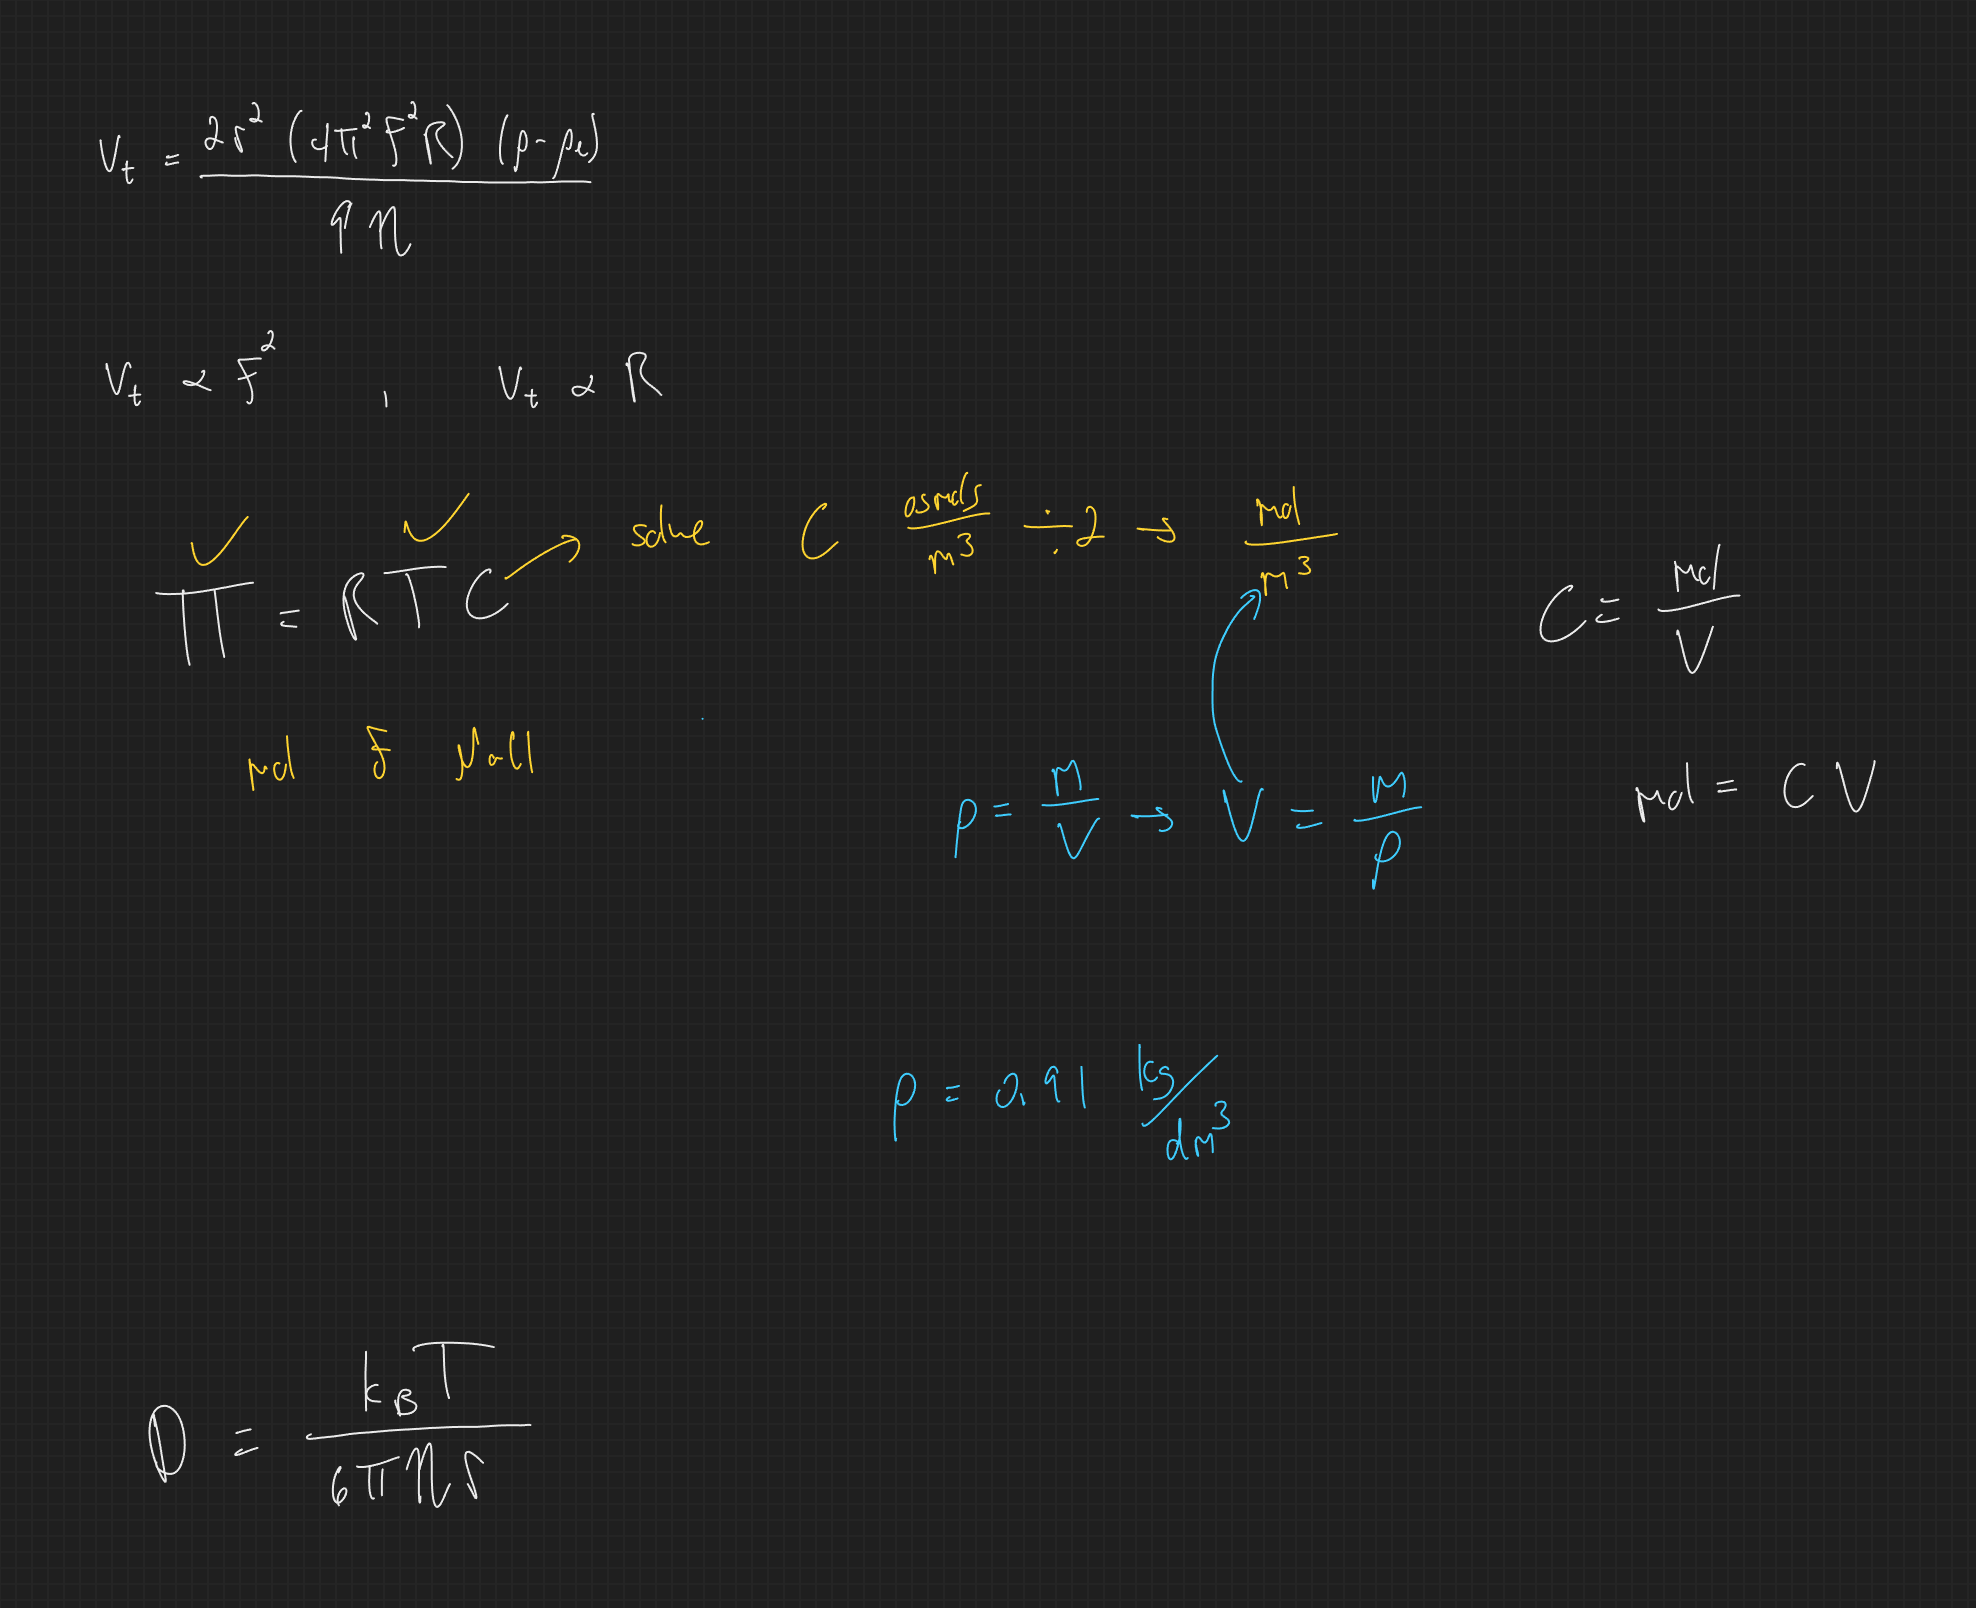 V_t = 2r² (4π²F²R) (ρ-ρ_l) / 9η
V_t ∝ F² , V_t ∝ R
✓ ✓
π = RTC → solve C osmols/m³ ÷2 → mol/m³
C = mol/V
mol of NaCl
ρ = m/V → V = m/ρ
mol = CV
ρ = 0.91 kg/dm³
D = k_B T / 6πηr